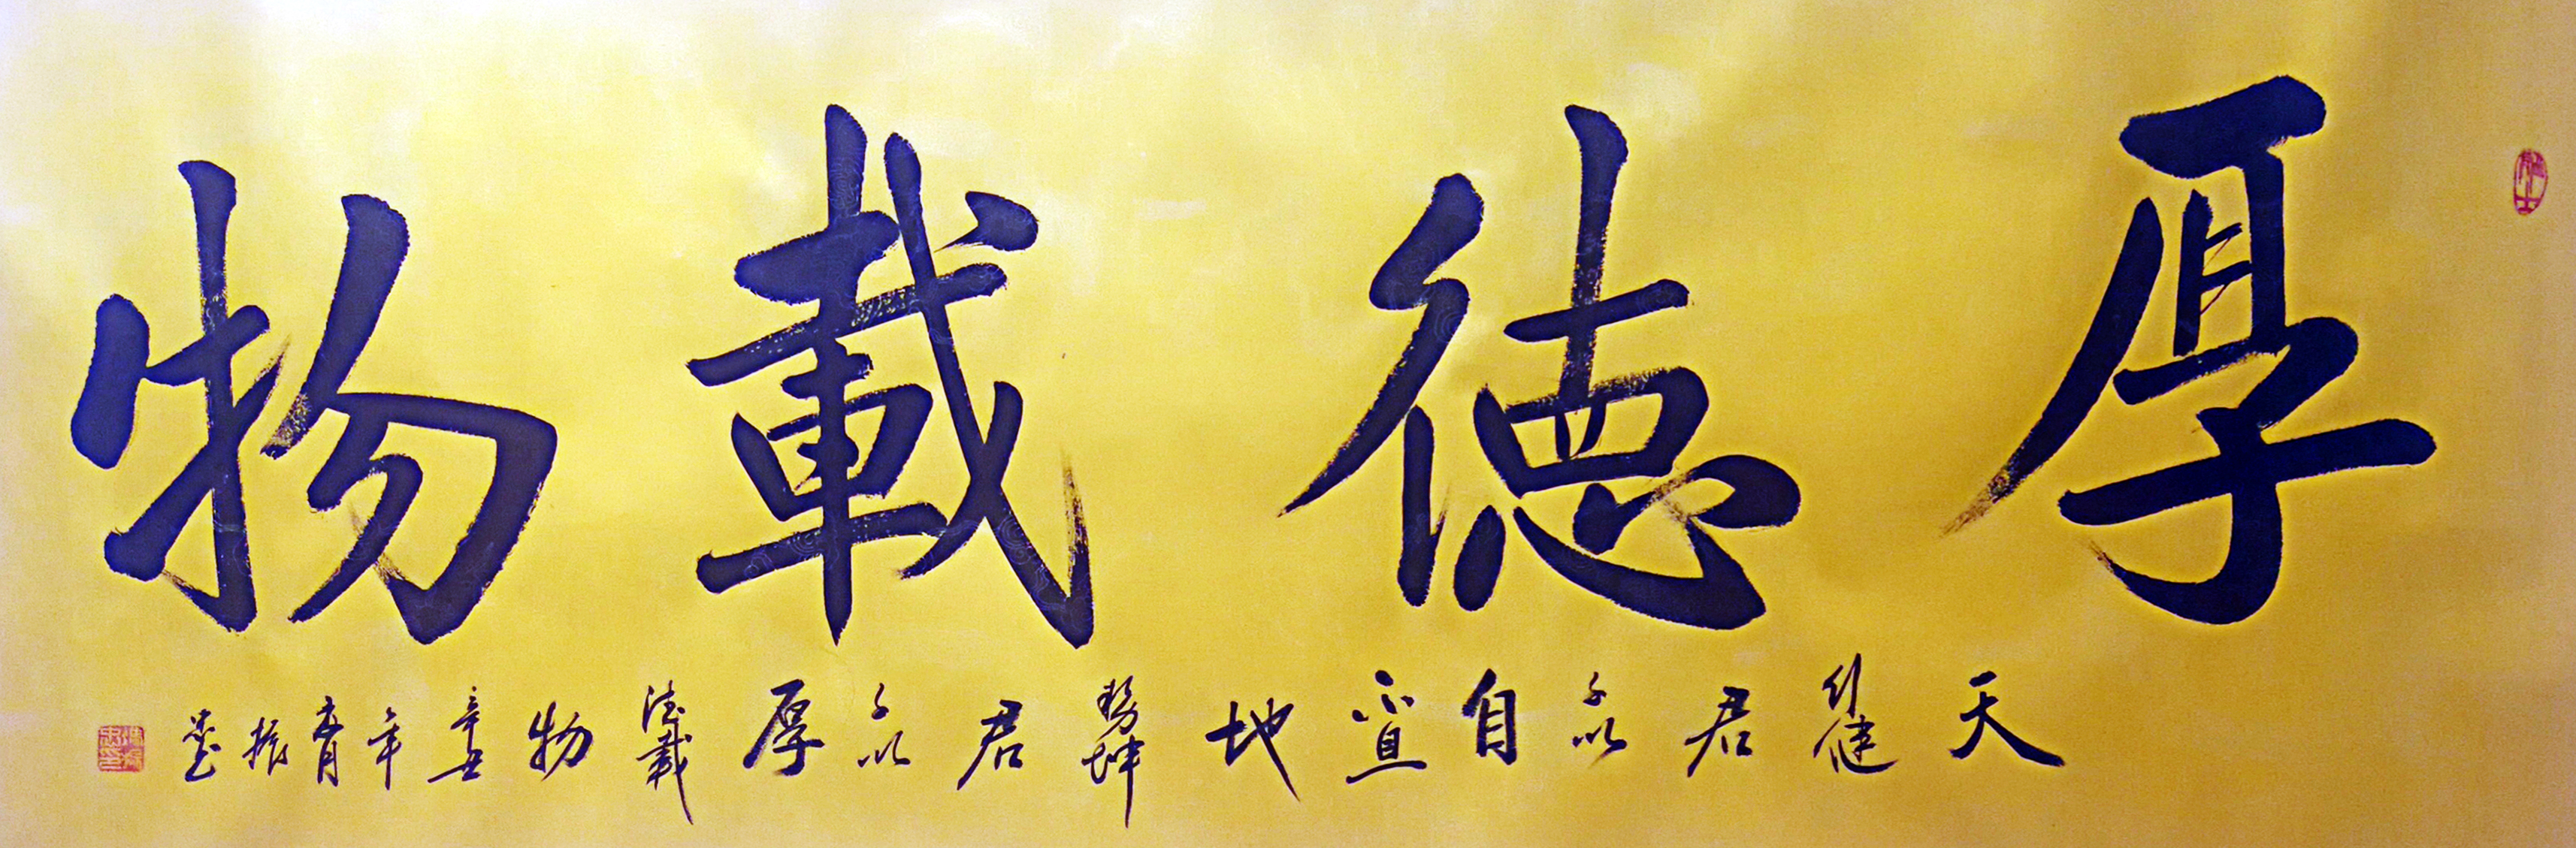 厚德載物
天行健君子以自不息地勢坤君子以厚德載物辛丑年振